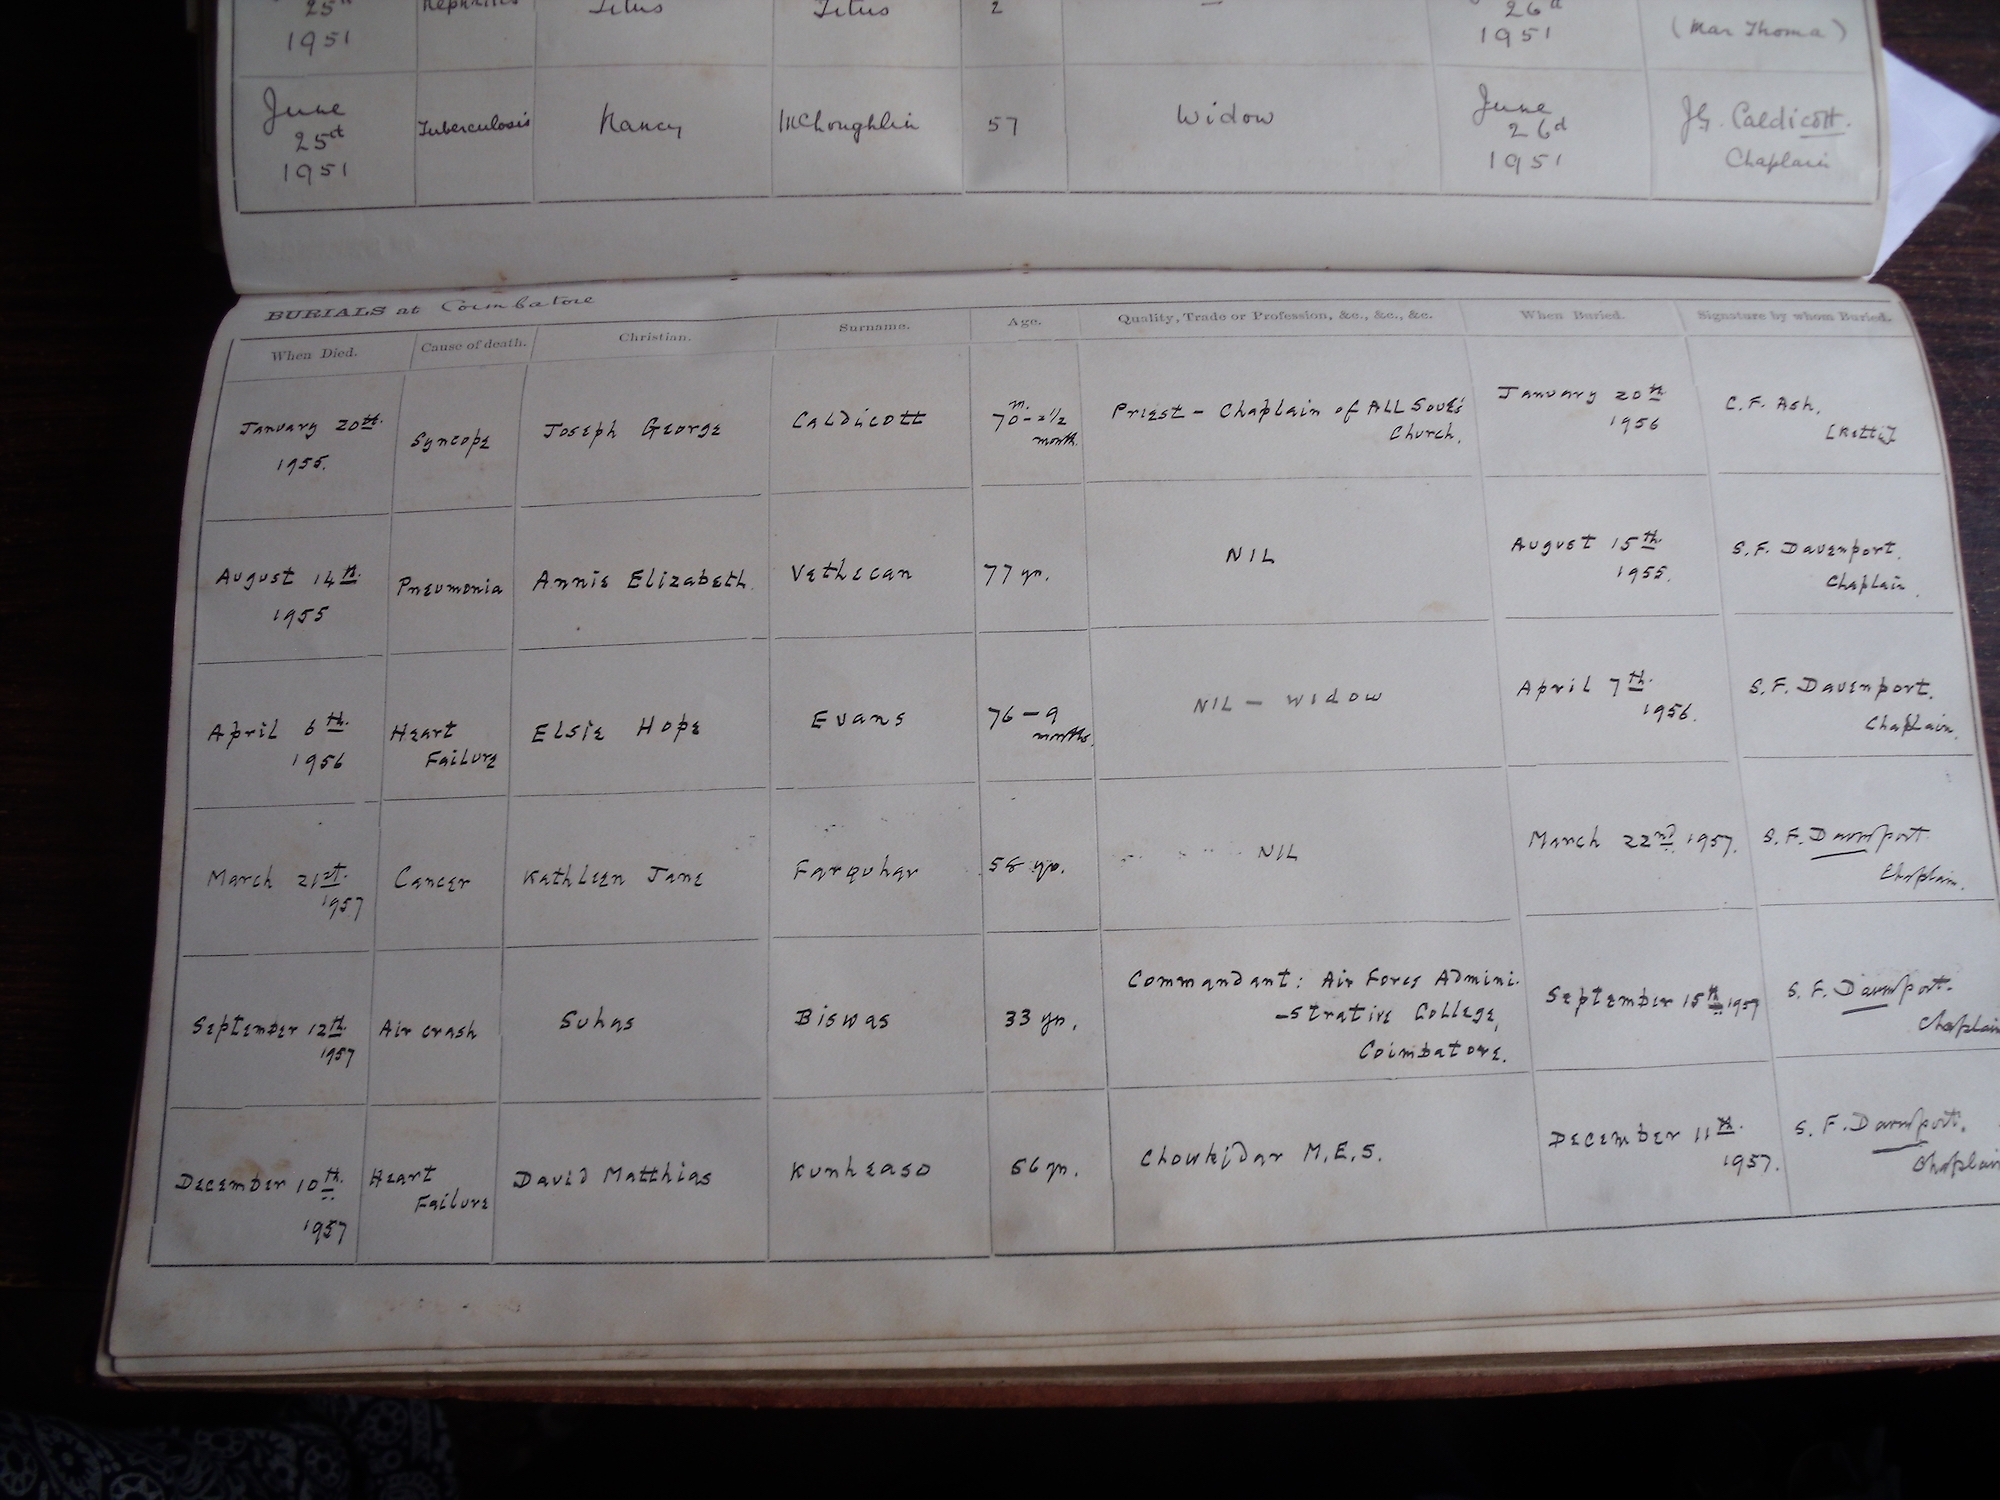 25th Nephritis Titus Titus 2 — 26th
1951 1951 (Mar Thoma)
June June
25st Tuberculosis Nancy McLoughlin 57 Widow 26d J.G. Caldicott.
1951 1951 Chaplain
BURIALS at Coimbatore
When Died. Cause of death. Christian. Surname. Age. Quality, Trade or Profession, &c., &c., &c. When Buried. Signature by whom Buried.
January 20th. Syncope Joseph George Caldicott 70-2½ Priest - Chaplain of All Souls' January 20th C.F. Ash,
1955. month. Church. 1956 [Ketti]
August 14th. Pneumonia Annie Elizabeth Vethecan 77 yr. NIL August 15th. S.F. Davenport.
1955 1955. Chaplain.
April 6th. Heart Elsie Hope Evans 76-9 NIL - Widow April 7th. S.F. Davenport.
1956 Failure months. 1956. Chaplain.
March 21st. Cancer Kathleen Jane Farquhar yr. NIL March 22nd. 1957. S.F. Davenport
1957 Chaplain.
September 12th. Air crash Suhas Biswas 33 yr. Commandant: Air Force Admini- September 15th 1957 S.F. Davenport.
1957 -strative College, Chaplain
Coimbatore.
December 10th. Heart David Matthias Kunheaso 56 yr. Chowkjdar M.E.S. December 11th. S.F. Davenport.
1957 Failure 1957. Chaplain